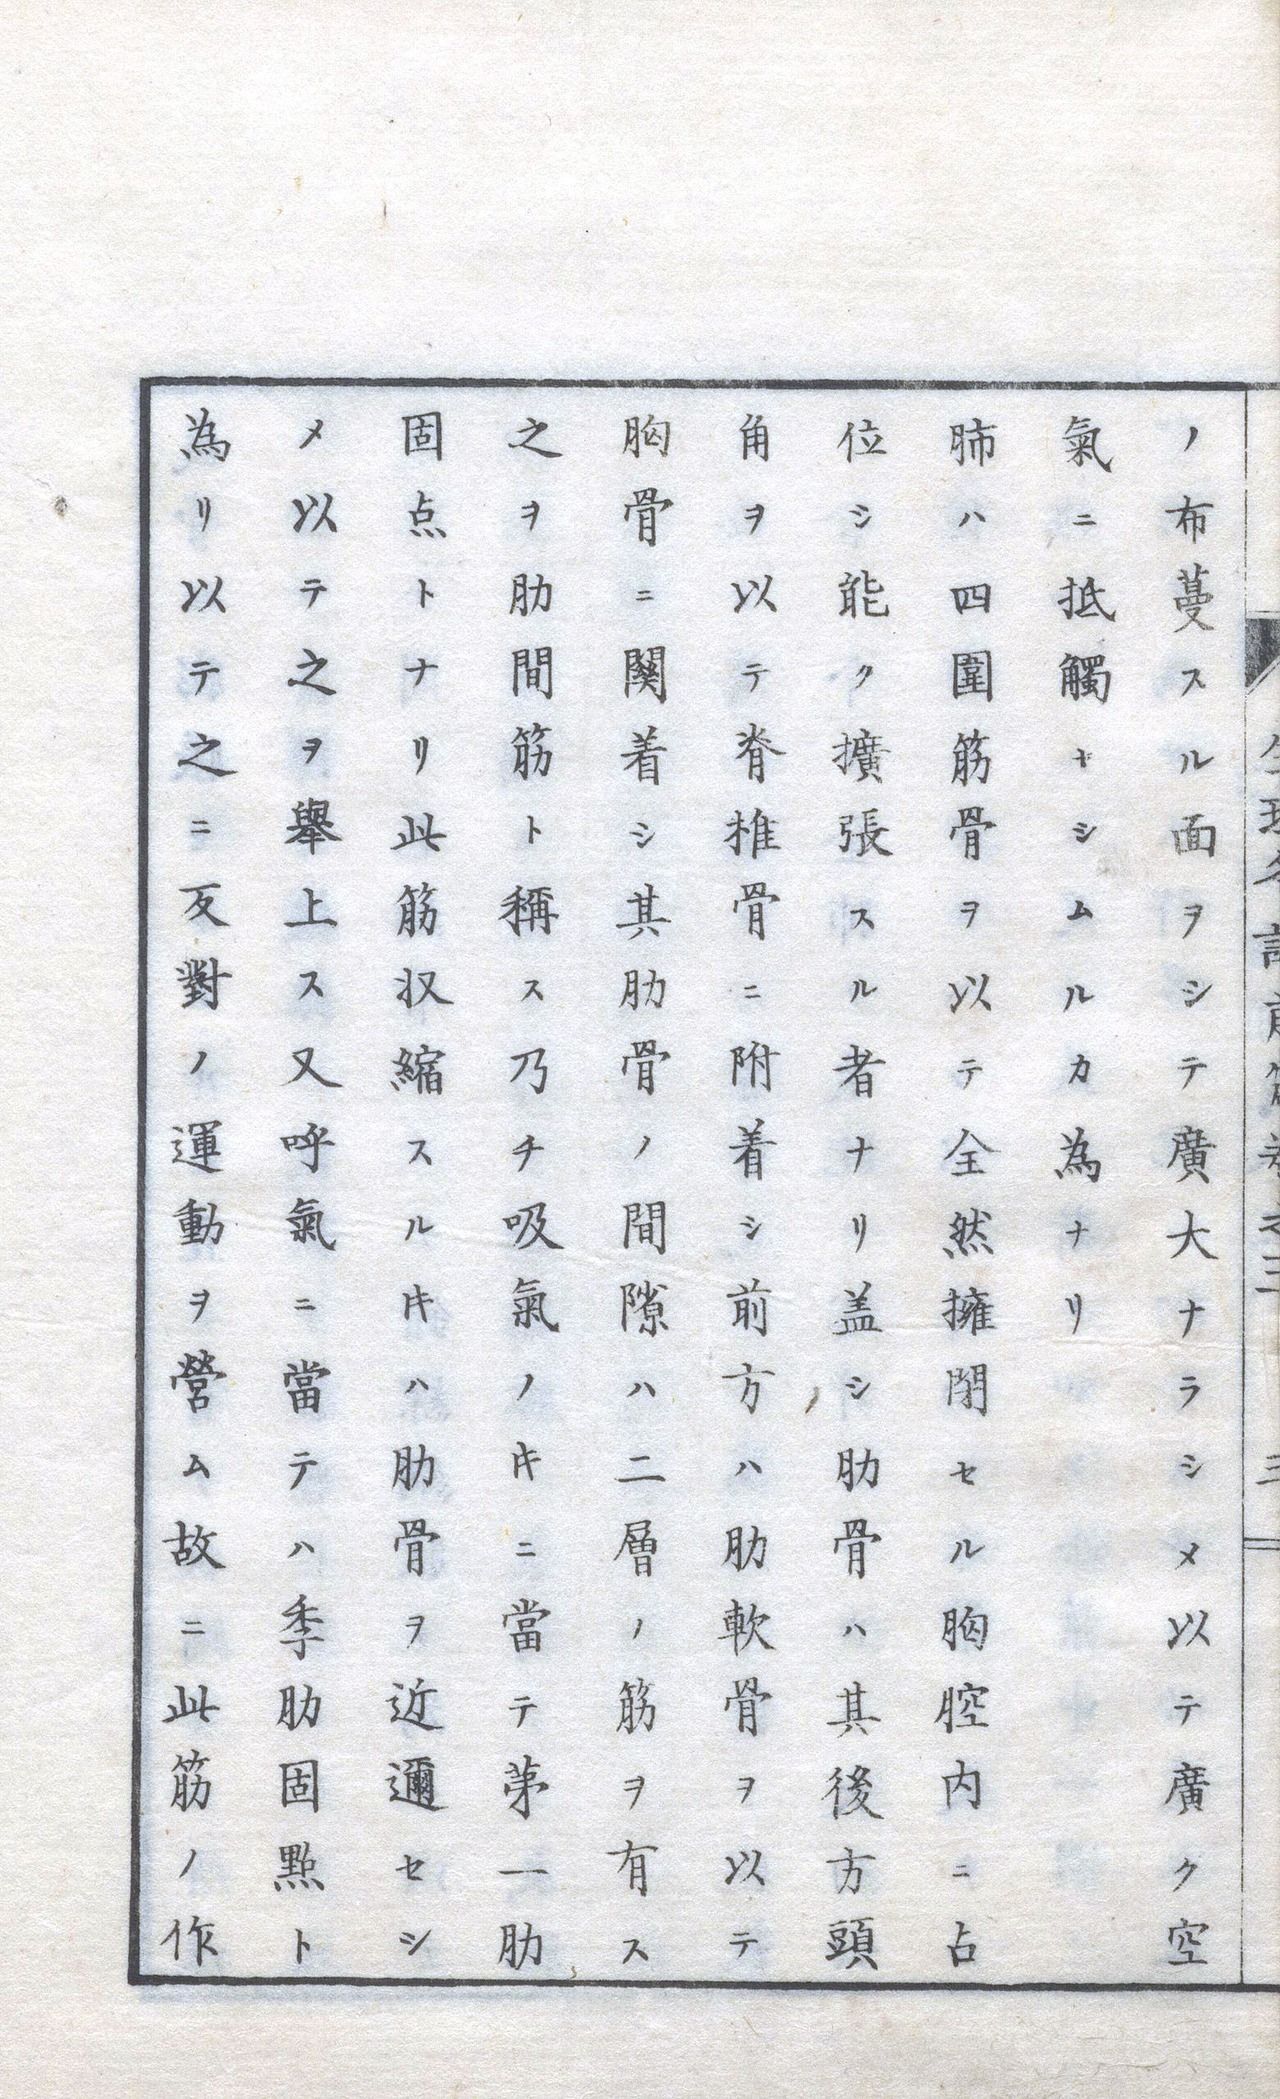 ノ布蔓スル面ヲシテ廣大ナラシメ以テ廣ク空
氣ニ抵觸セシムルカ為ナリ
肺ハ四圍筋骨ヲ以テ全然擁閉セル胸腔内ニ占
位シ能ク擴張スル者ナリ盖シ肋骨ハ其後方頭
角ヲ以テ脊椎骨ニ附着シ前方ハ肋軟骨ヲ以テ
胸骨ニ関着シ其肋骨ノ間隙ハ二層ノ筋ヲ有ス
之ヲ肋間筋ト稱ス乃チ吸氣ノ𪜈ニ當テ苐一肋
固点トナリ此筋収縮スル𪜈ハ肋骨ヲ近邇セシ
メ以テ之ヲ擧上ス又呼氣ニ當テハ季肋固㸃ト
為リ以テ之ニ反對ノ運動ヲ營ム故ニ此筋ノ作